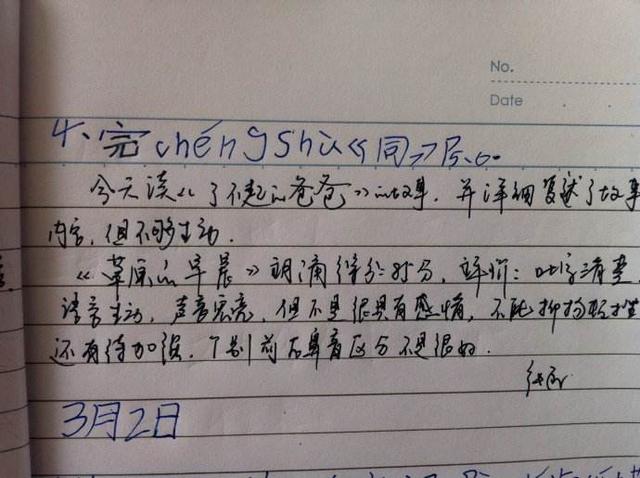 No.
Date
4、完chéngshù《同》P5、6。
今天读《了不起的爸爸》的故事，并详细复述了故事
内容，但不够生动。
《草原的早晨》朗诵得分：85分，评价：吐字清楚
语言生动，声音宏亮，但不是很具有感情，不能抑扬顿挫
还有待加强。个别前后鼻音区分不是很好。
3月2日